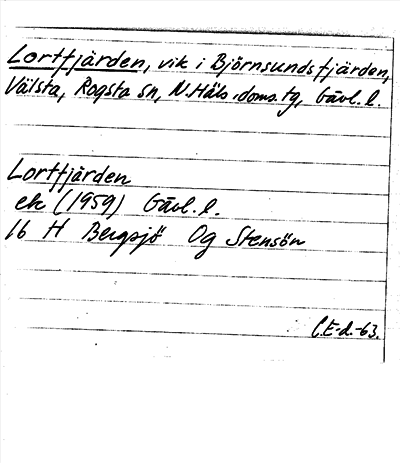 Lortfjärden, vik i Björnsundsfjärden,
Välsta, Rogsta sn, N.Häls. doms. tg, Gävl. l.
Lortfjärden
ek (1959) Gävl. l.
16 H Bergsjö Og Stensön
C.E-d.-63.